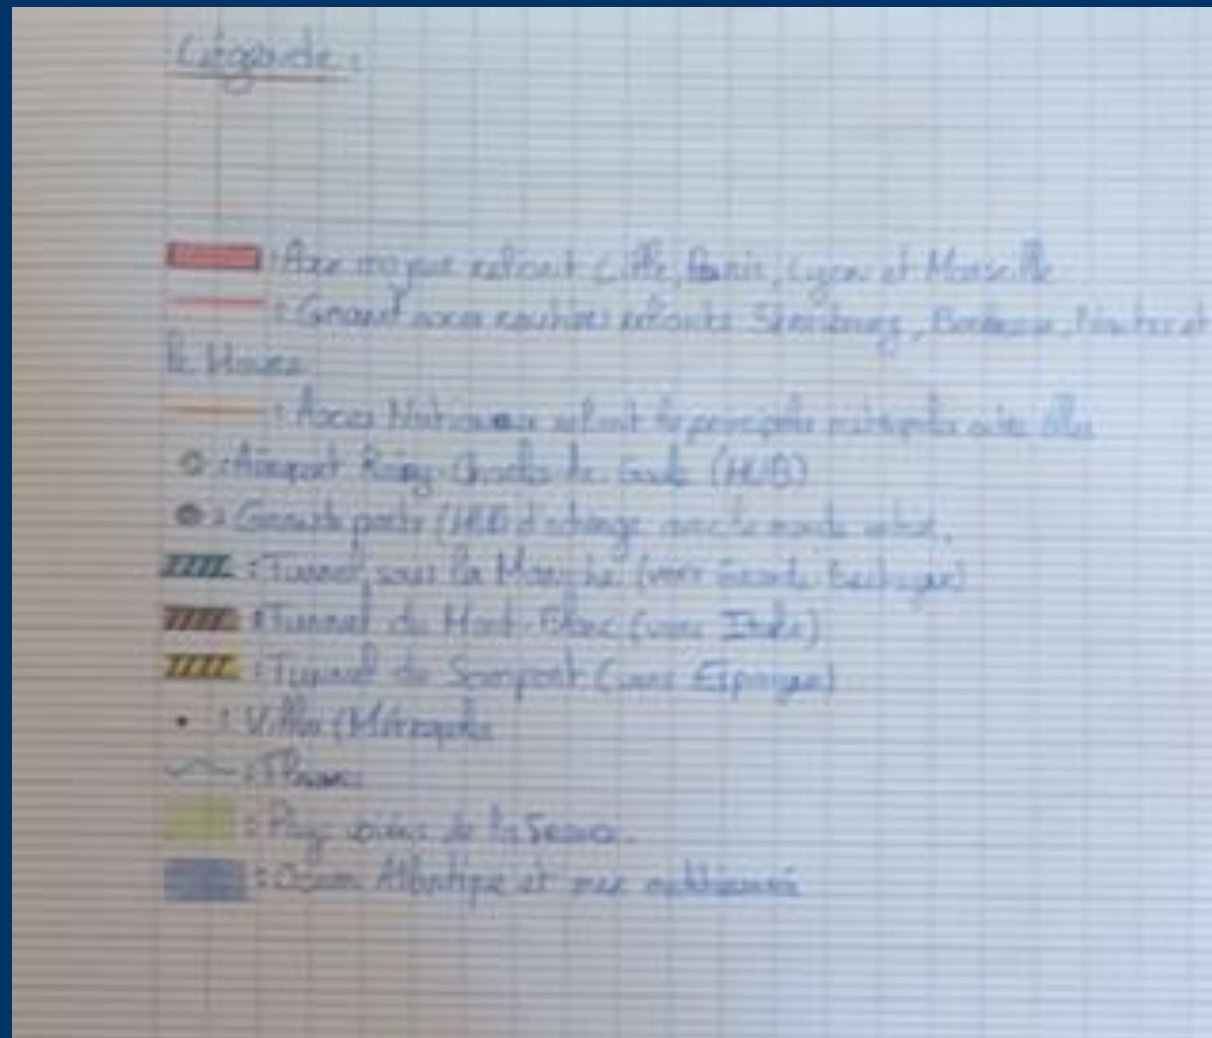 Légende :
: Axe majeur reliant Lille, Paris, Lyon et Marseille
: Grand axes routiers reliants Strasbourg, Bordeaux, Nantes et
le Havre
: Axes Nationaux reliant les principales métropoles entre elles
: Aéroport Roissy-Charles de Gaule (HUB)
: Grands ports (HUB d'échange avec le monde
: Tunnel sous la Manche (vers Grande Bretagne)
: Tunnel du Mont-Blanc (vers Italie)
: Tunnel de Somport (vers Espagne)
: Villes (Métropoles
: Fleuves
: Pays voisins de la France
: Océan Atlantique et mer